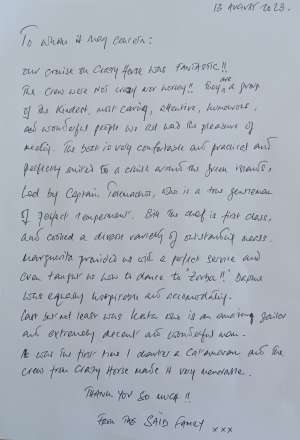 13 AUGUST 2023.
To whom it may concern:
Our cruise on Crazy Horse was FANTASTIC!!
The crew were not crazy nor horsey!! They are a group
of the kindest, most caring, attentive, humourous,
and wonderful people we all had the pleasure of
meeting. The boat is very comfortable and practical and
perfectly suited to a cruise around the Greek islands,
led by Captain Telemachos, who is a true gentleman
of perfect temperament. the chef is first class,
and cooked a diverse variety of outstanding meals.
Marguerita provided us with a perfect service and
even taught us how to dance to "Zorba"!! Daphne
was equally hospitable and accomodating.
Last but not least was who is an amazing sailor
and extremely decent and wonderful man.
It was the first time I charter a Catamaran and the
crew from Crazy Horse made it very memorable.
THANK YOU SO MUCH!!
FROM THE SAÏD FAMILY
xxx